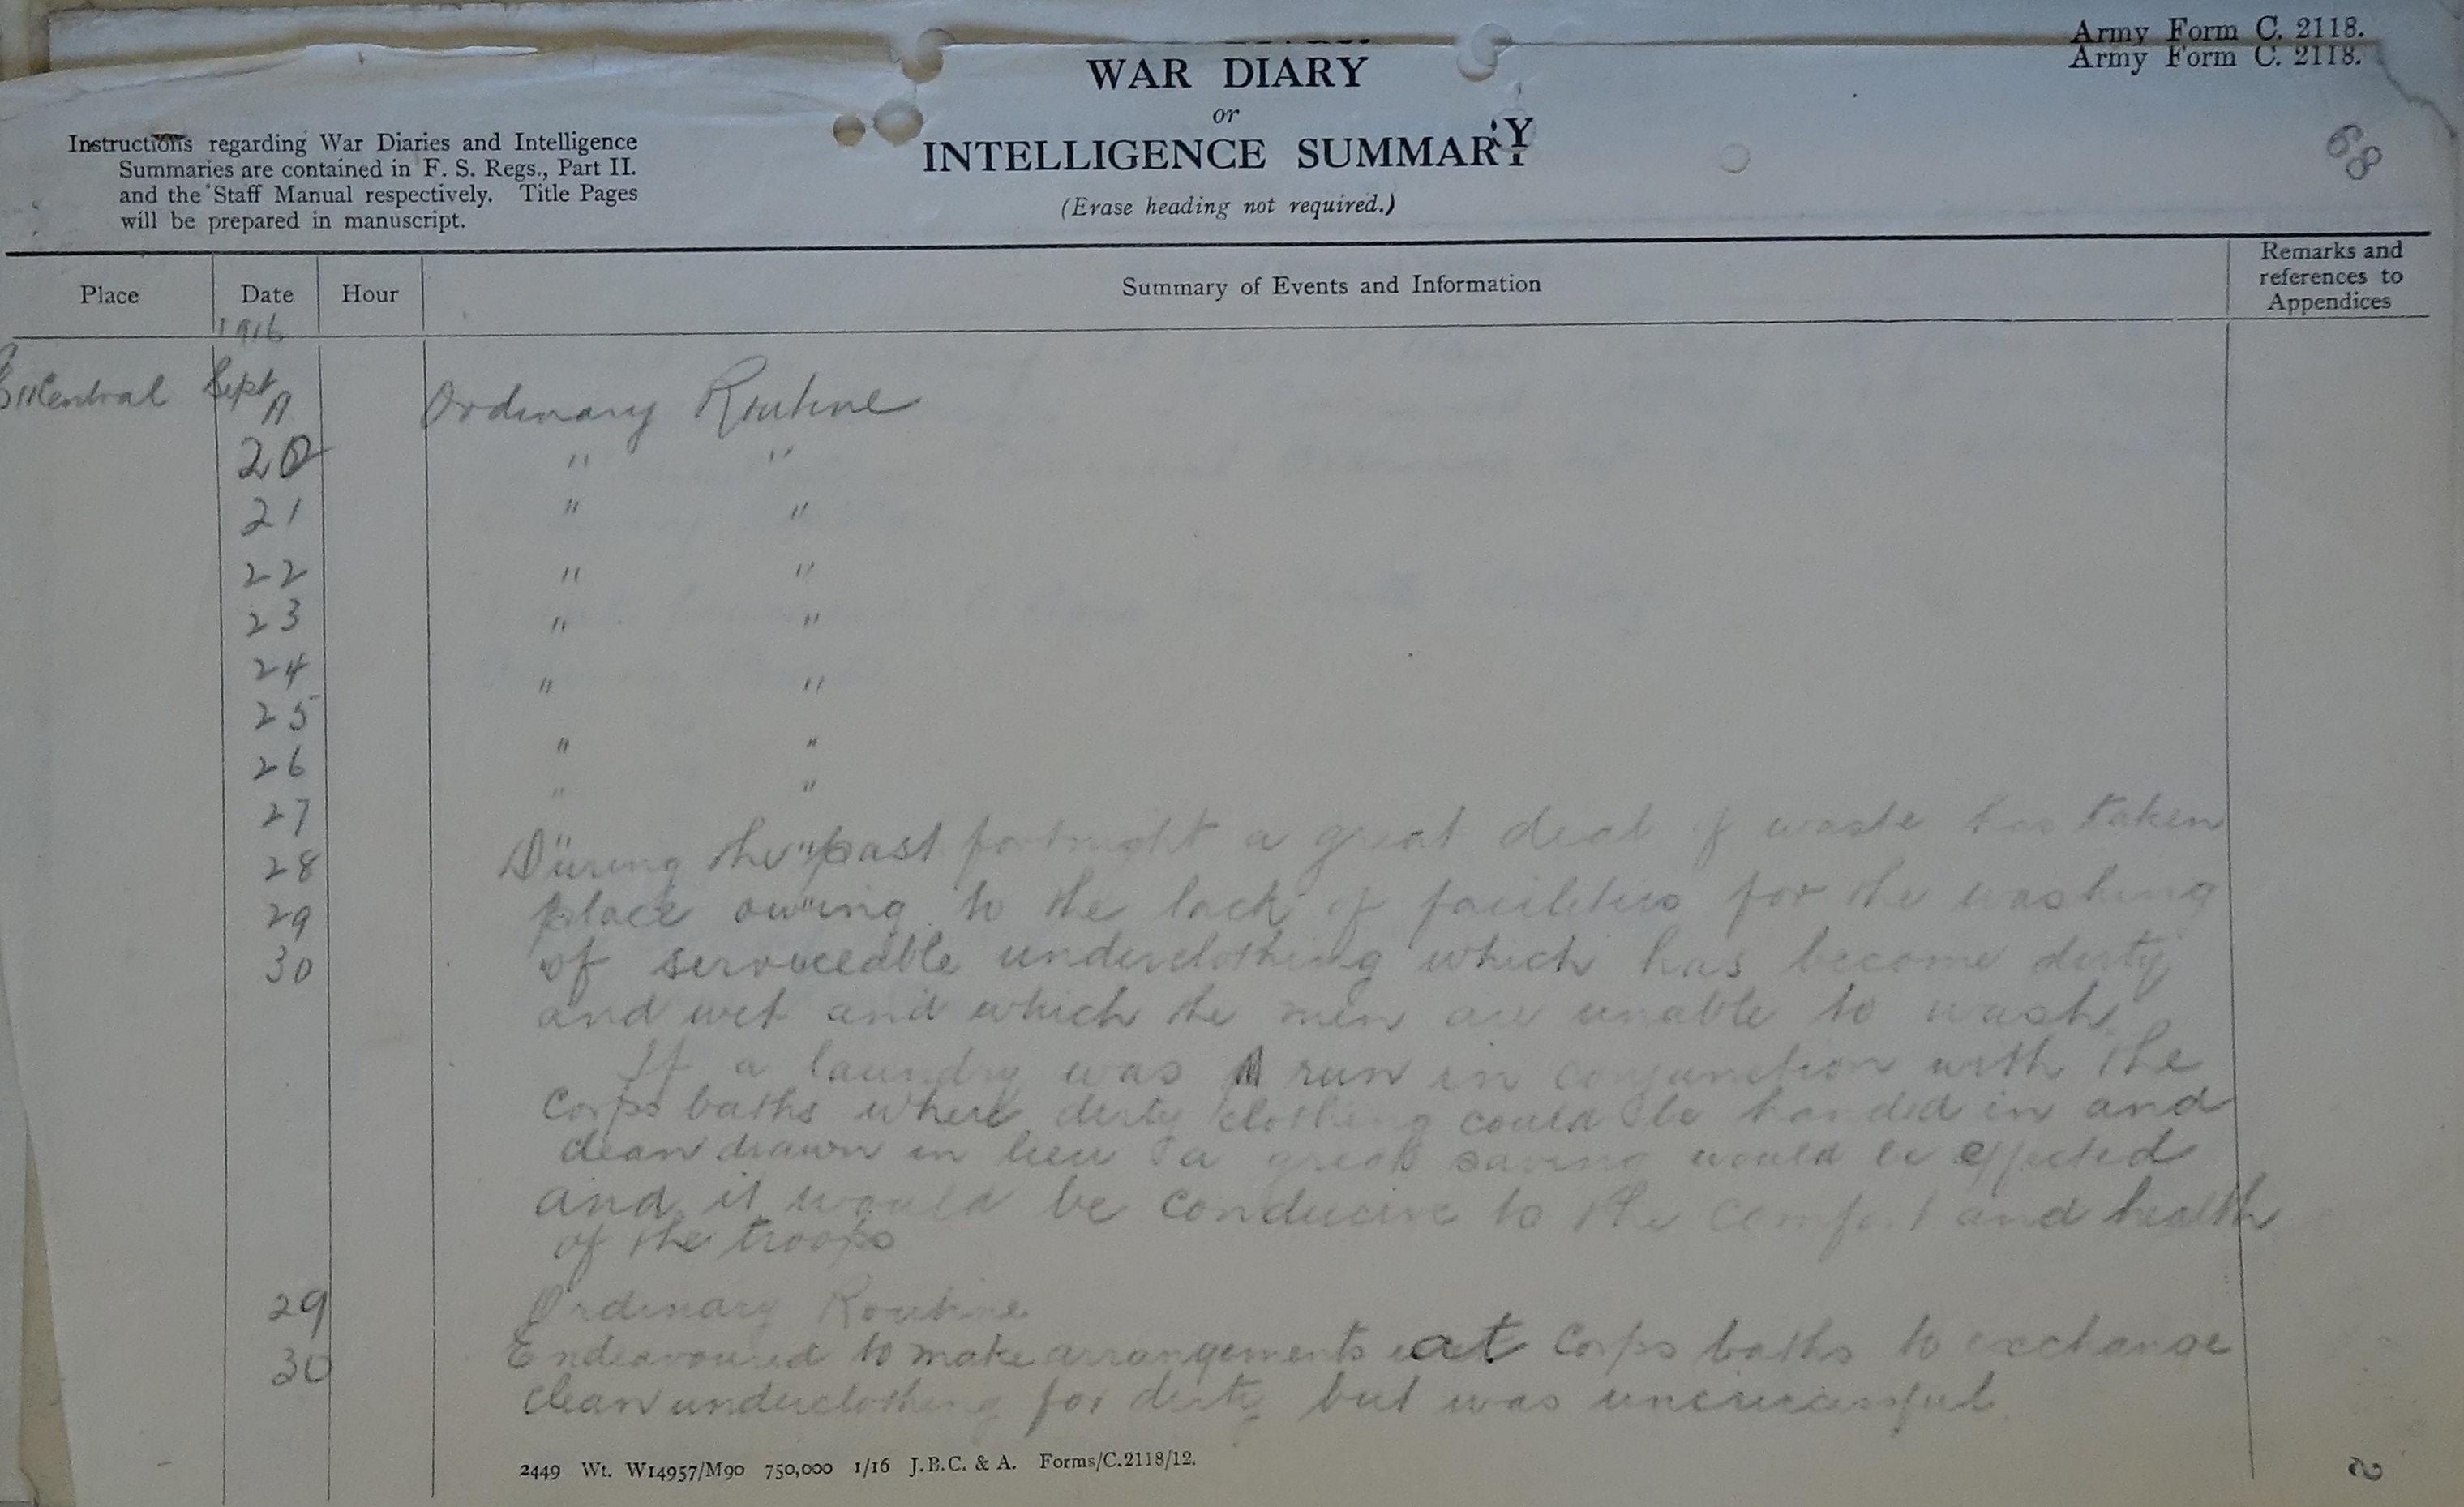 Army Form C. 2118.
Army Form C. 2118.
WAR DIARY
or
INTELLIGENCE SUMMARY
(Erase heading not required.)
Instructions regarding War Diaries and Intelligence
Summaries are contained in F. S. Regs., Part II.
and the Staff Manual respectively. Title Pages
will be prepared in manuscript.
68
Place Date Hour Summary of Events and Information Remarks and references to Appendices
1916
Central Sept Ordinary Routine
20 " "
21 " "
22 " "
23 " "
24 " "
25 " "
26 " "
27 " "
28 During the past fortnight a great deal of waste has taken
29 place owing to the lack of facilities for the washing
30 of serviceable underclothing which has become dirty
and wet and which the men are unable to wash
If a laundry was run in conjunction with the
Corps baths where dirty clothing could be handed in and
clean drawn in lieu a great saving would be effected
and it would be conducive to the comfort and health
of the troops
29 Ordinary Routine
30 Endeavoured to make arrangements at Corps baths to exchange
clean underclothing for dirty but was unsuccessful.
2449 Wt. W14957/M90 750,000 1/16 J.B.C. & A. Forms/C.2118/12.